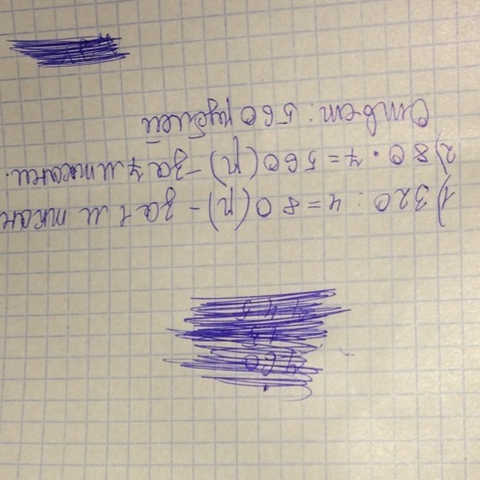 1) 320 : 4 = 80 (р) - за 1 м ткан
2) 80 · 7 = 560 (р) - за 7 м ткани.
Ответ: 560 рублей